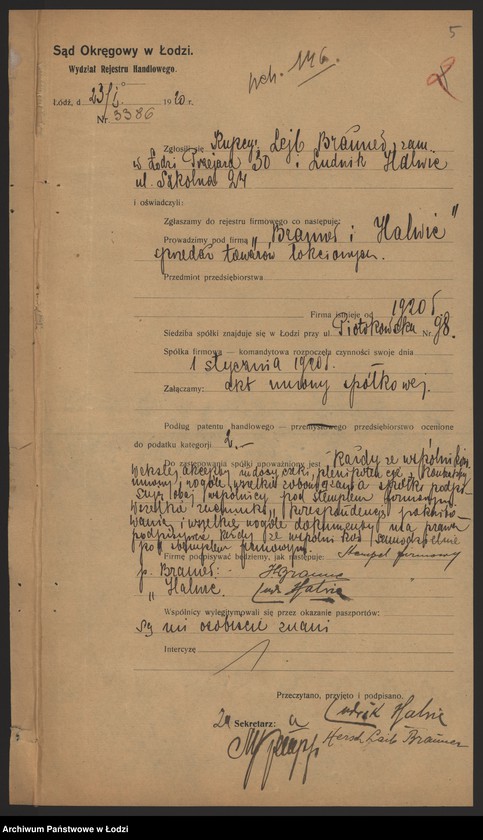 5
Sąd Okręgowy w Łodzi.
Wydział Rejestru Handlowego.
pch. 146.
Łódź, d. 23/I. 1920 r.
Nr 3386
Zgłosili się Kupcy: Lejb Brauner, zam.
w Łodzi Przejazd 30 i Ludwik Halwic
ul. Szkolna 24
i oświadczyli:
Zgłaszamy do rejestru firmowego co następuje:
Prowadzimy pod firmą „Brauner i Halwic"
sprzedaż towarów łokciowych.
Przedmiot przedsiębiorstwa
Firma istnieje od 1920 r.
Siedziba spółki znajduje się w Łodzi przy ul. Piotrkowska Nr. 98.
Spółka firmowa — komandytowa rozpoczęła czynności swoje dnia
1 stycznia 1920 r.
Załączamy: akt umowy spółkowej.
Podług patentu handlowego — przemysłowego przedsiębiorstwo ocenione
do podatku kategorji 2.-
Do zastępowania spółki upoważniony jest Każdy ze wspólników.
Weksle, akcepty, indosy, czeki, plenipotencje, kontrakty
umowy, wogóle wszelkie zobowiązania spółki podpi-
szą obaj wspólnicy pod stemplem firmowym
Wszelką korespondencję, pokwito-
wania i wszelkie wogóle dokumenty ma prawo
podpisywać każdy ze wspólników samodzielnie
pod stemplem firmowym.
Firmę podpisywać będziemy, jak następuje: Stempel firmowy
p. Brauner: - HBrauner
„ Halwic. Ludw. Halwic
Wspólnicy wylegitymowali się przez okazanie paszportów:
są mi osobiście znani
Intercyzę
Przeczytano, przyjęto i podpisano.
Ludwik Halwic
Hersch Laib Brauner
za Sekretarz:
Archiwum Państwowe w Łodzi